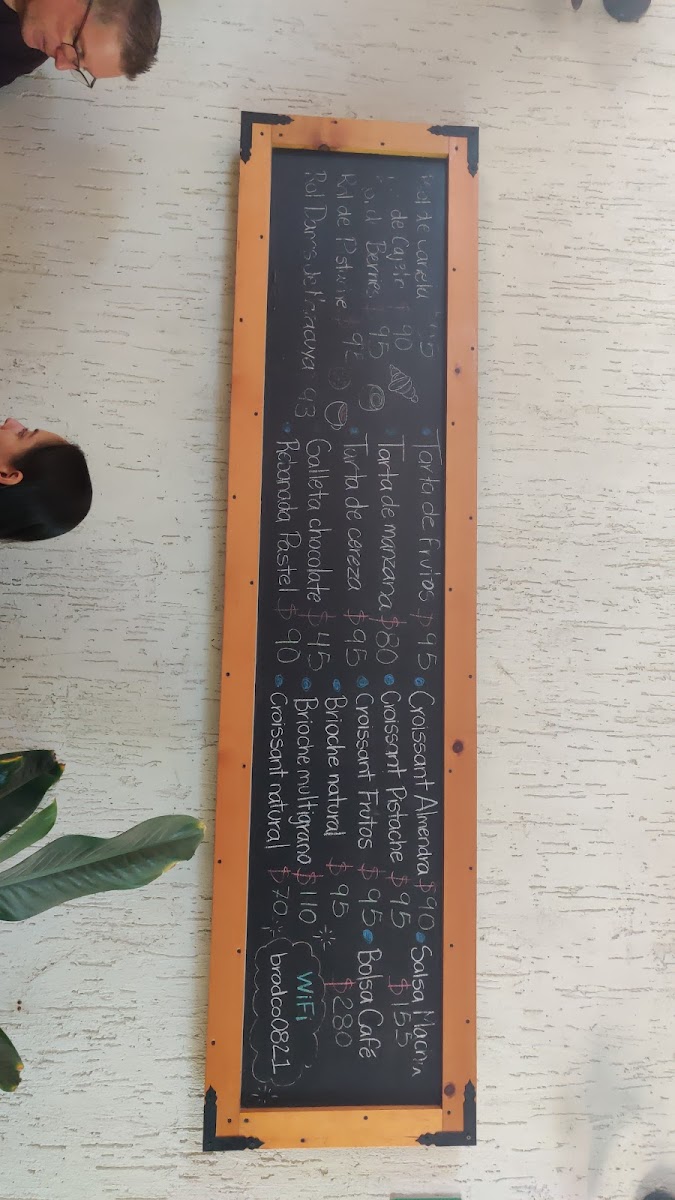 Rol de canela
de Cajeta $ 90
Rol Berries $ 95
Rol de Pistache
Rol Dums de Maracuya 93
Tarta de frutos $ 95
Tarta de manzana $ 80
Tarta de cereza $ 95
Galleta chocolate $ 45
Rebanada Pastel $ 90
Croissant Almendra $ 90
Croissant Pistache $ 95
Croissant Frutos $ 95
Brioche natural $ 95
Brioche multigrano $ 110
Croissant natural $ 70
Salsa Macha
$ 155
Bolsa Café
$ 280
WiFi
brodco0821